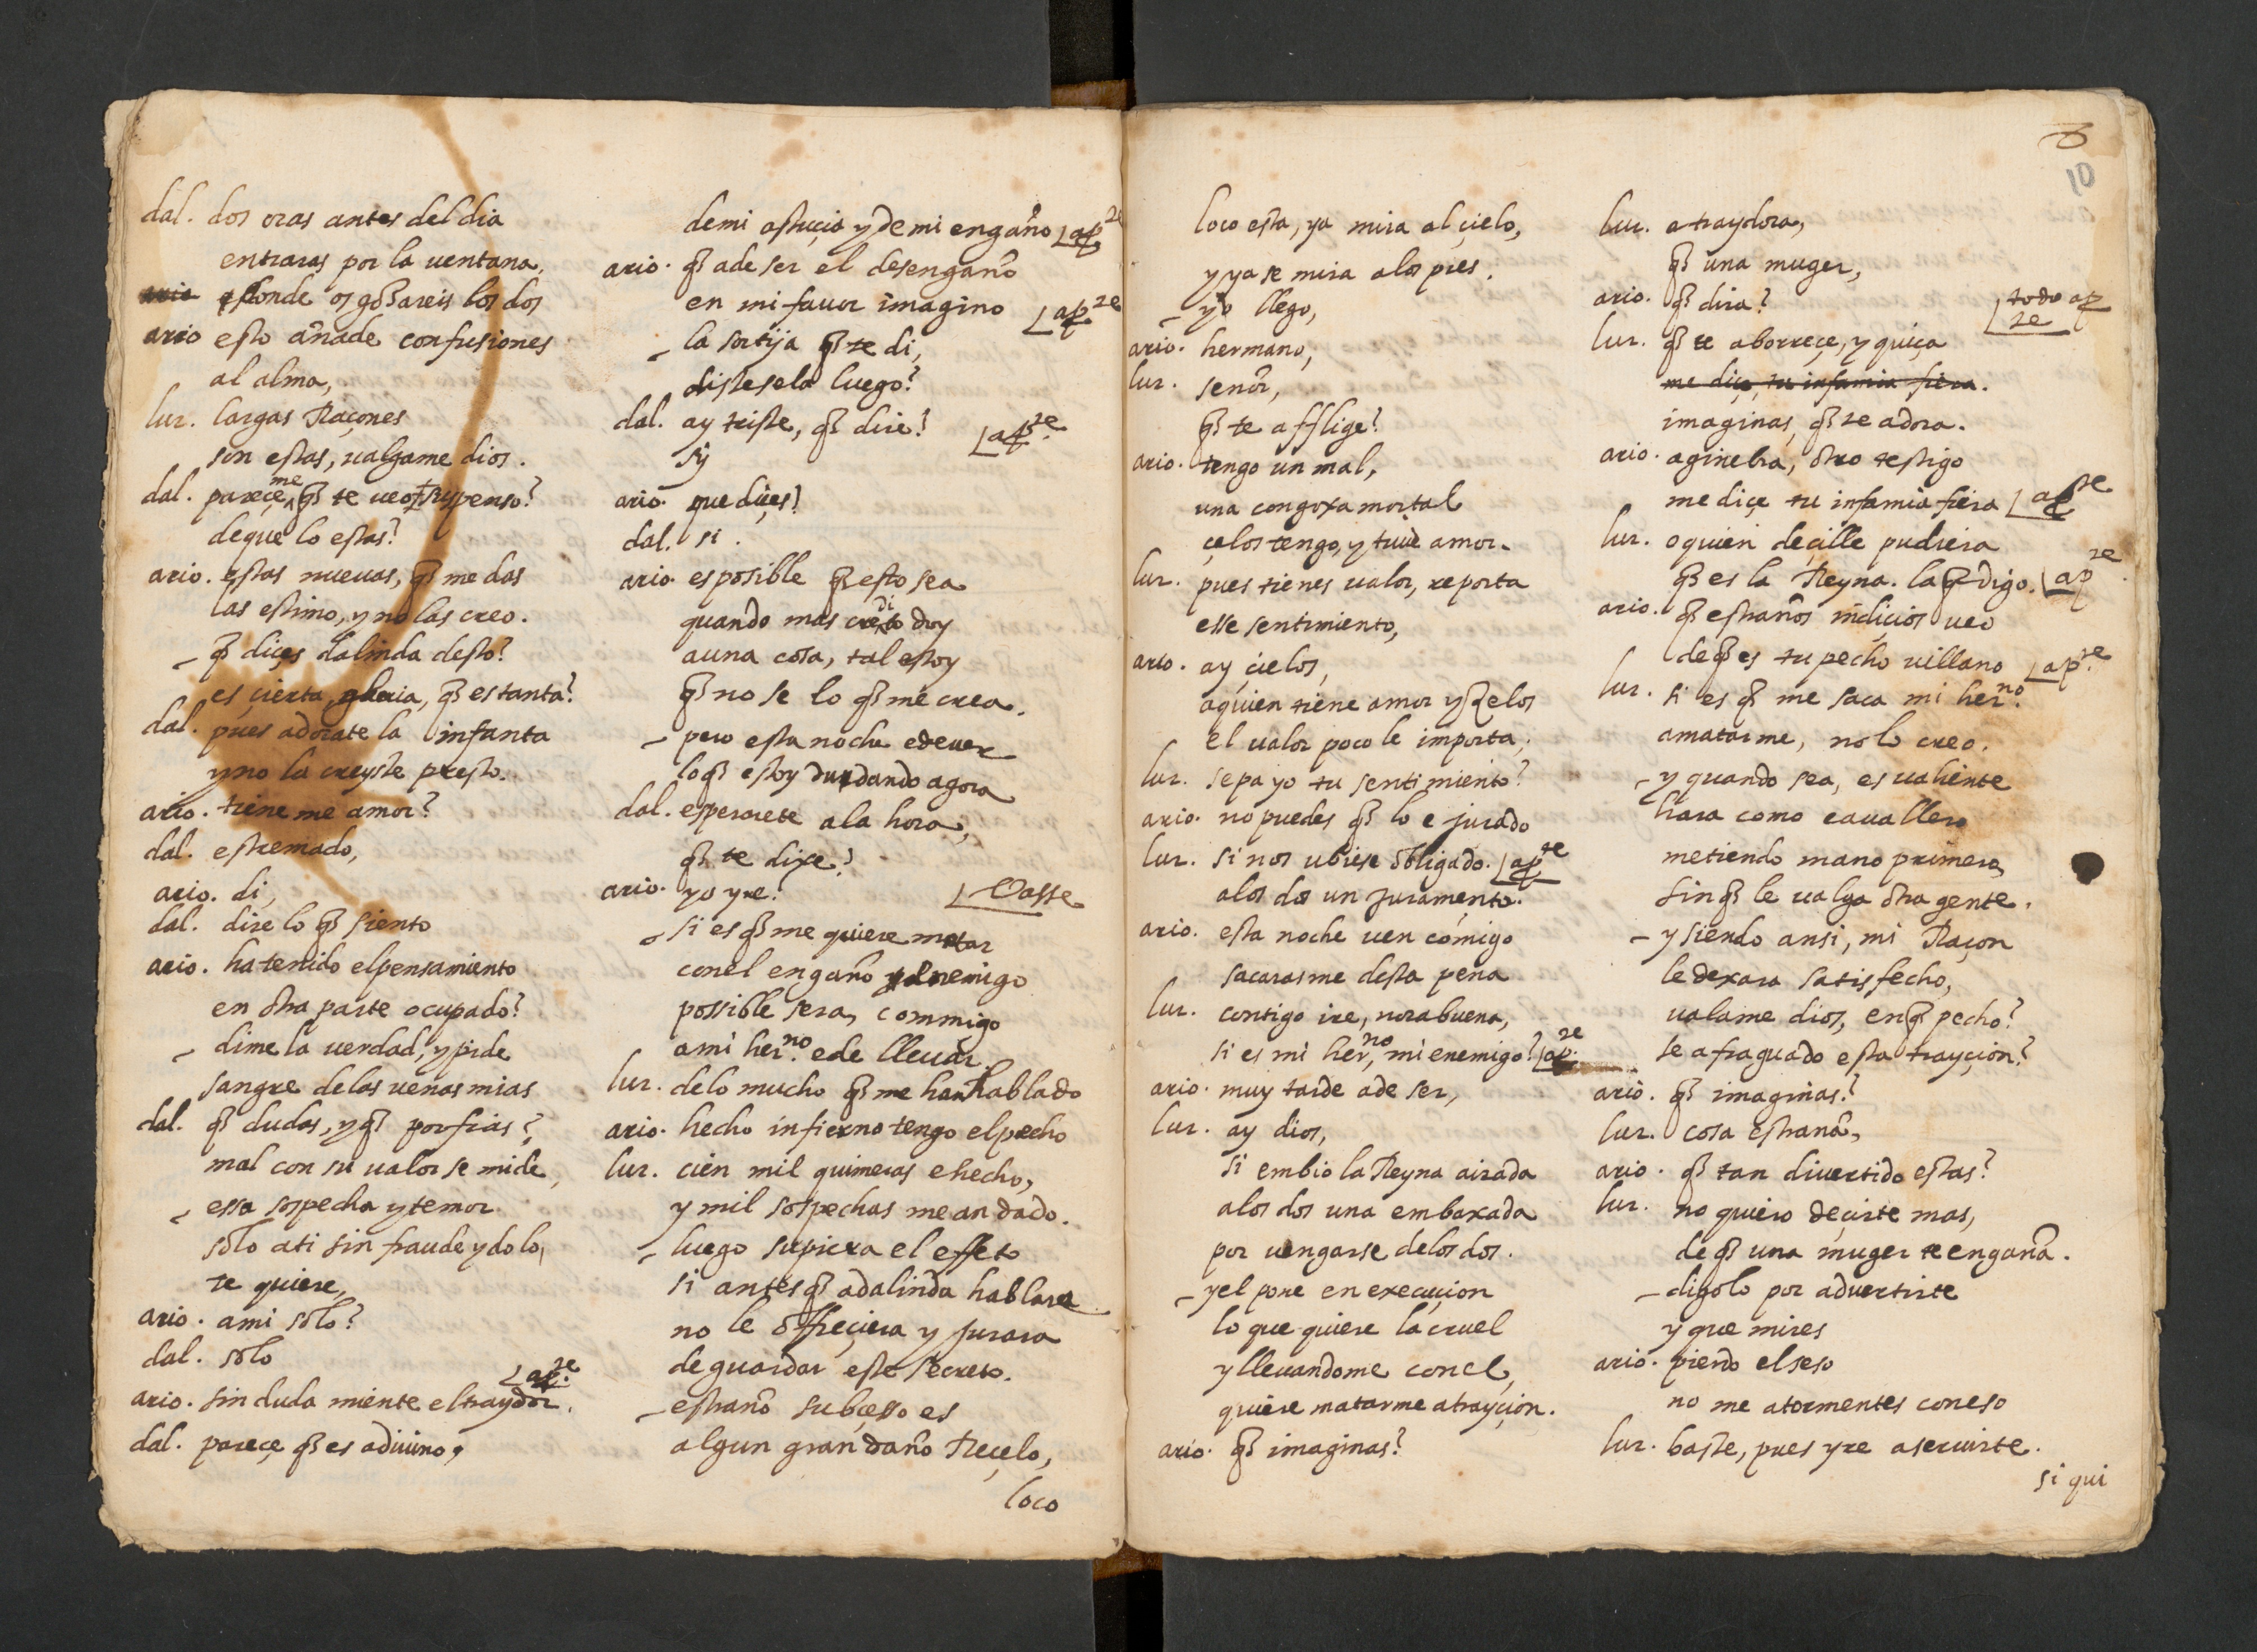 dal. dos oras antes del dia
entraras por la uentana,
ario donde os goçareis los dos
ario esto añade confusiones
al alma,
lur. largas Raçones
son estas, ualgame dios.
dal. pareçe me q̃ te ueo suspenso?
de que lo estas?
ario. estas nueuas, q̃ me das
las estimo, y no las creo.
- q̃ diçes dalinda desto?
es çierta, gloria, q̃ es tanta?
dal. pues adorate la infanta
y no la creyste presto.
ario. tiene me amor?
dal. estremado,
ario. di,
dal. dire lo q̃ siento
ario. ha tenido el pensamiento
en otra parte ocupado?
- dime la uerdad, y pide
sangre de las uenas mias
dal. q̃ dudas, y q̃ porfias?
mal con su ualor se mide,
- essa sospecha y temor
solo a ti sin fraude y dolo,
te quiere,
ario. a mi solo?
dal. solo
ario. sin duda miente el traydor. ap.te
dal. pareçe q̃ es adiuino,
de mi astuçia y de mi engaño ap.te
ario. q̃ a de ser el desengaño
en mi fauor imagino ap.te
- la sortija q̃ te di,
distesela luego?
dal. ay triste, q̃ dire? ap.te
sy
ario. que diçes?
dal. si.
ario. es posible q̃ esto sea
quando mas credito doy
a una cosa, tal estoy
q̃ no se lo q̃ me crea.
- pero esta noche e de uer
lo q̃ estoy dudando agora
dal. esperarete a la hora,
q̃ te dixe?
ario. yo yre. Vasse
- si es q̃ me quiere matar
con el engaño y el nemigo
possible sera, commigo
a mi her.no e de lleuar
lur. de lo mucho q̃ me han hablado
ario. hecho infierno tengo el pecho
lur. cien mil quimeras e hecho,
y mil sospechas me an dado.
- luego supiera el effeto
si antes q̃ a dalinda hablara
no le offreçiera y jurara
de guardar este secreto.
- estraño subçesso es
algun gran daño Reçelo,
loco
8
10
loco esta, ya mira al çielo,
y ya se mira a los pies.
- yo llego,
ario. hermano,
lur. señor,
q̃ te afflige?
ario. tengo un mal,
una congoxa mortal
çelos tengo, y tuue amor.
lur. pues tienes ualor, reporta
esse sentimiento,
ario. ay çielos,
a quien tiene amor y zelos
el ualor poco le importa,
lur. sepa yo tu sentimiento?
ario. no puedes q̃ lo e jurado
lur. si nos ubiese obligado. ap.te
a los dos un juramento.
ario. esta noche uen comigo
sacarasme desta pena
lur. contigo ire, norabuena,
si es mi her.no, mi enemigo? ap.te
ario. muy tarde a de ser,
lur. ay dios,
si embio la Reyna airada
a los dos una embaxada
por uengarse de los dos.
- y el pone en execuçion
lo que quiere la cruel
y lleuandome con el,
quiere matarme a trayçion.
ario. q̃ imaginas?
lur. a traydora,
q̃ una muger,
ario. q̃ dira? todo ap.te
lur. q̃ te aborreçe, y quiça
me diçe, tu infamia fiera.
imaginas, q̃ te adora.
ario. a ginebra, otro testigo
me diçe tu infamia fiera ap.te
lur. o quien deçille pudiera
q̃ es la Reyna. la q̃ digo. ap.te
ario. q̃ estraños indiçios ueo
de q̃ es tu pecho uillano ap.te
lur. si es q̃ me saca mi her.no
a matarme, no lo creo.
- y quando sea, es ualiente
hara como cauallero
metiendo mano primero
sin q̃ le ualga otra gente.
- y siendo ansi, mi Raçon
le dexara satisfecho,
ualame dios, en q̃ pecho?
se a fraguado esta trayçion?
ario. q̃ imaginas?
lur. cosa estraña,
ario. q̃ tan diuertido estas?
lur. no quiero deçirte mas,
de q̃ una muger te engaña.
- digolo por aduertirte
y que mires
ario. pierdo el seso
no me atormentes con eso
lur. baste, pues yre a seruirte.
si qui